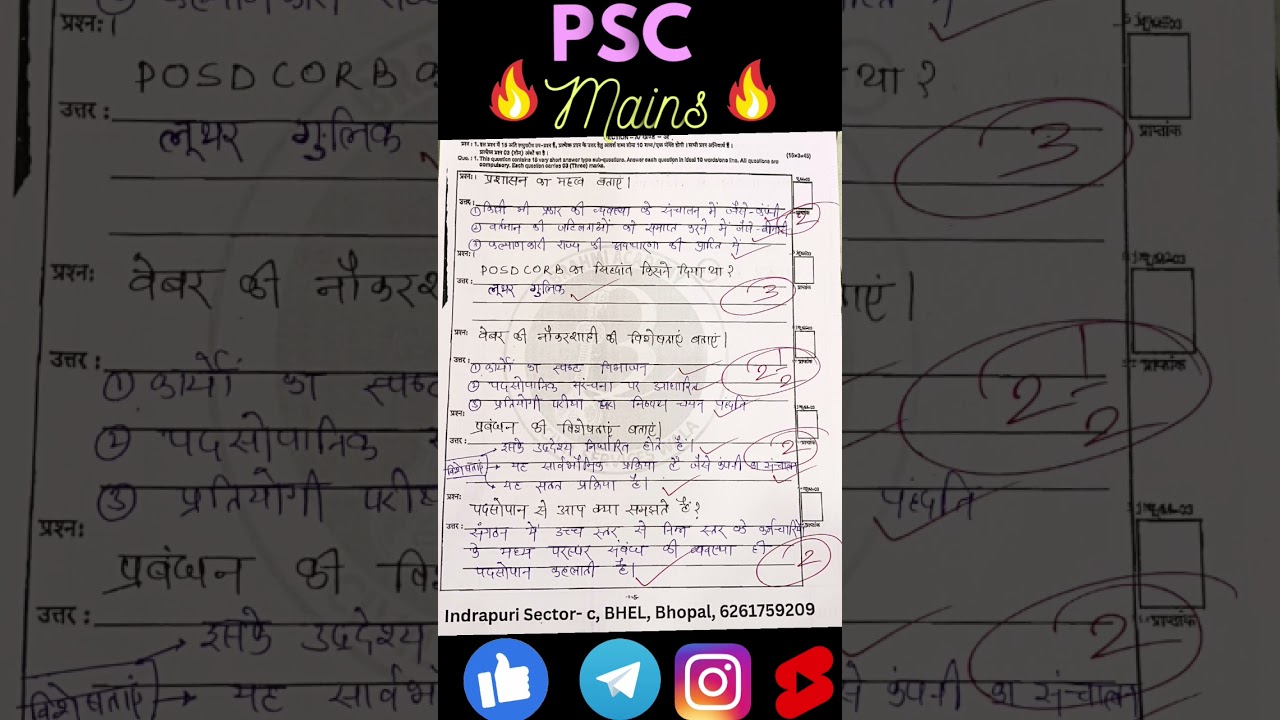 PSC
Mains
प्रश्न : 1. इस प्रश्न में 15 अति लघुउत्तरीय उप-प्रश्न हैं, प्रत्येक प्रश्न के उत्तर हेतु आदर्श शब्द सीमा 10 शब्द/एक पंक्ति होगी । सभी प्रश्न अनिवार्य हैं ।
प्रत्येक प्रश्न 03 (तीन) अंकों का है ।
(15×3=45)
Que. : 1. This question contains 15 very short answer type sub-questions. Answer each question in ideal 10 words/one line. All questions are
compulsory. Each question carries 03 (Three) marks.
प्रश्न: प्रशासन का महत्व बताएं।
उत्तर : ① किसी भी प्रकार की व्यवस्था के संचालन में जैसे-कंपनी
② वर्तमान की जटिलताओं को समाप्त करने में जैसे-
③ कल्याणकारी राज्य की अवधारणा की प्राप्ति में
2
प्रश्न:
POSDCORB का सिद्धांत किसने दिया था?
उत्तर : लूथर गुलिक
3
प्रश्न: वेबर की नौकरशाही की विशेषताएं बताएं।
उत्तर : ① कार्यों का स्पष्ट विभाजन
② पदसोपानिक संरचना पर आधारित
③ प्रतियोगी परीक्षा द्वारा निष्पक्ष चयन पद्धति
2 1/2
प्रश्न: प्रबंधन की विशेषताएं बताएं।
उत्तर : इसके उद्देश्य निर्धारित होते हैं।
विशेषताएं → यह सार्वभौमिक प्रक्रिया है जैसे कंपनी का संचालन
यह सतत प्रक्रिया है।
2
प्रश्न: पदसोपान से आप क्या समझते हैं?
उत्तर : संगठन में उच्च स्तर से निम्न स्तर के कर्मचारियों
के मध्य परस्पर संबंध की व्यवस्था ही
पदसोपान कहलाती है।
2
Indrapuri Sector- c, BHEL, Bhopal, 6261759209